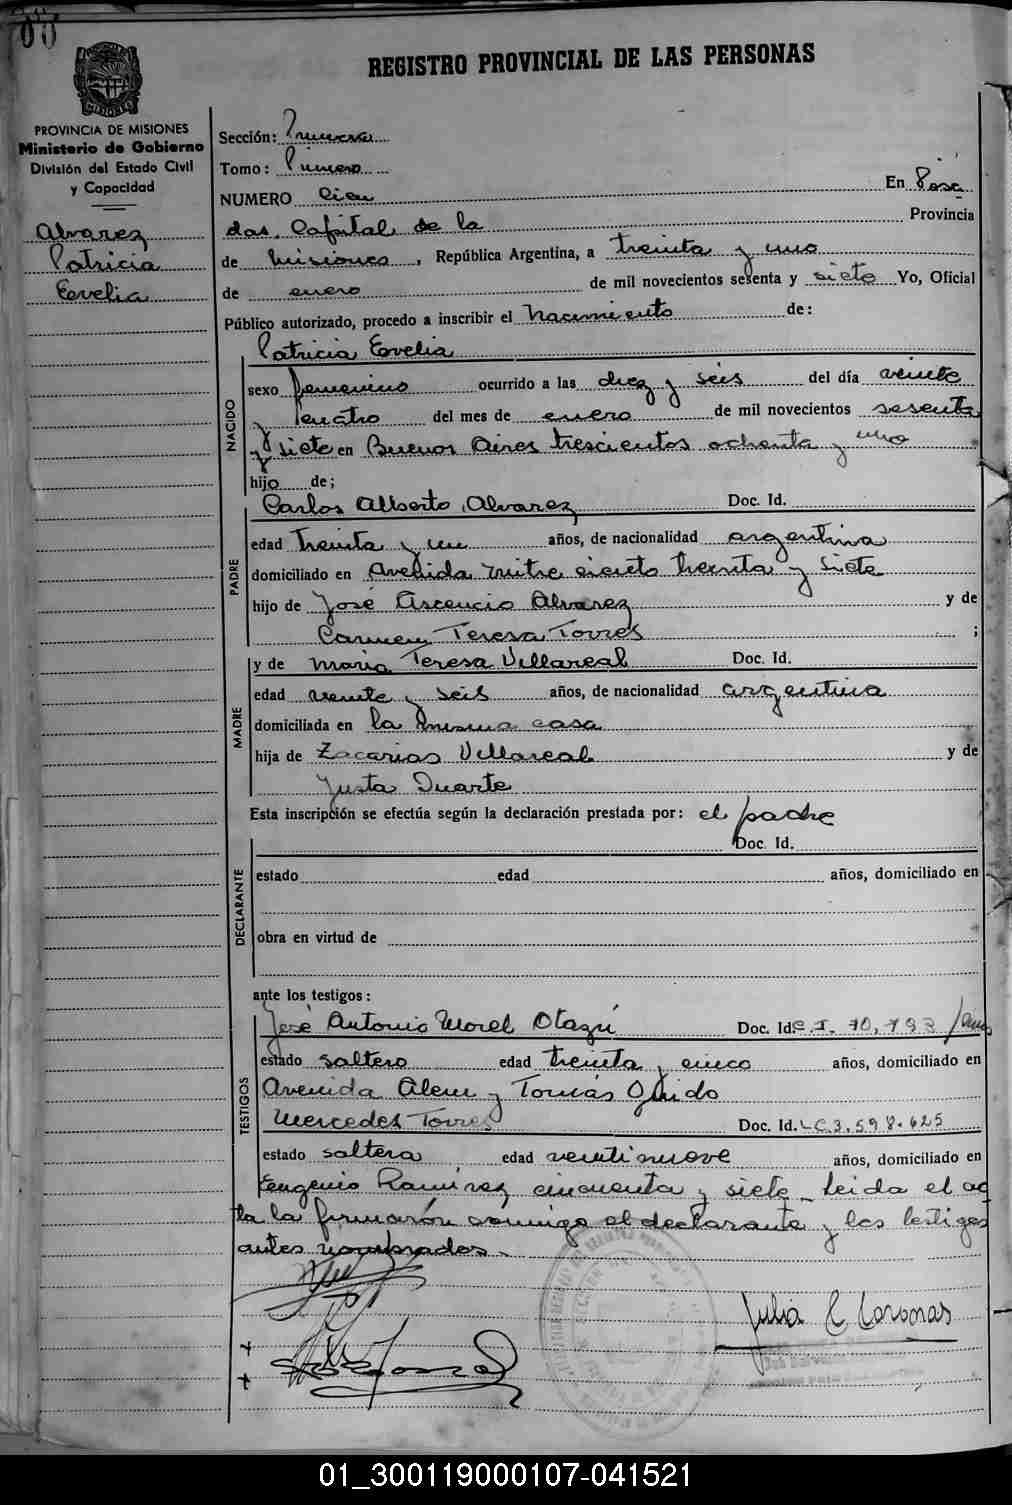 REGISTRO PROVINCIAL DE LAS PERSONAS
MISIONES
PROVINCIA DE MISIONES
Ministerio de Gobierno
División del Estado Civil
y Capacidad
Alvarez
Patricia
Eevelia
Sección: Primera
Tomo: Primero
NUMERO Cien En Posa
das, Capital de la Provincia
de Misiones, República Argentina, a treinta y uno
de enero de mil novecientos sesenta y siete Yo, Oficial
Público autorizado, procedo a inscribir el Nacimiento de:
NACIDO
Patricia Eevelia
sexo femenino ocurrido a las diez y seis del día veinte
y cuatro del mes de enero de mil novecientos sesenta
y siete en Buenos Aires trescientos ochenta y uno
hijo de;
PADRE
Carlos Alberto Alvarez Doc. Id.
edad treinta y un años, de nacionalidad argentina
domiciliado en Avenida Mitre ciento treinta y siete
hijo de José Ascencio Alvarez y de
Carmen Teresa Torres ;
MADRE
y de Maria Teresa Villareal Doc. Id.
edad veinte y seis años, de nacionalidad argentina
domiciliada en la misma casa
hija de Zacarias Villareal y de
Justa Duarte
Esta inscripción se efectúa según la declaración prestada por: el padre
DECLARANTE
Doc. Id.
estado edad años, domiciliado en
obra en virtud de
ante los testigos:
TESTIGOS
José Antonio Morel Otazú Doc. Id. C.I. 70.793
estado soltero edad treinta y cinco años, domiciliado en
Avenida Alem y Tomás Guido
Mercedes Torres Doc. Id. LC 3.598.625
estado soltera edad veintinueve años, domiciliado en
Eugenio Ramírez cincuenta y siete leida el ac
ta la firmarón conmigo el declarante y los testigos
antes nombrados.
Julia C Coronas
01_300119000107-041521